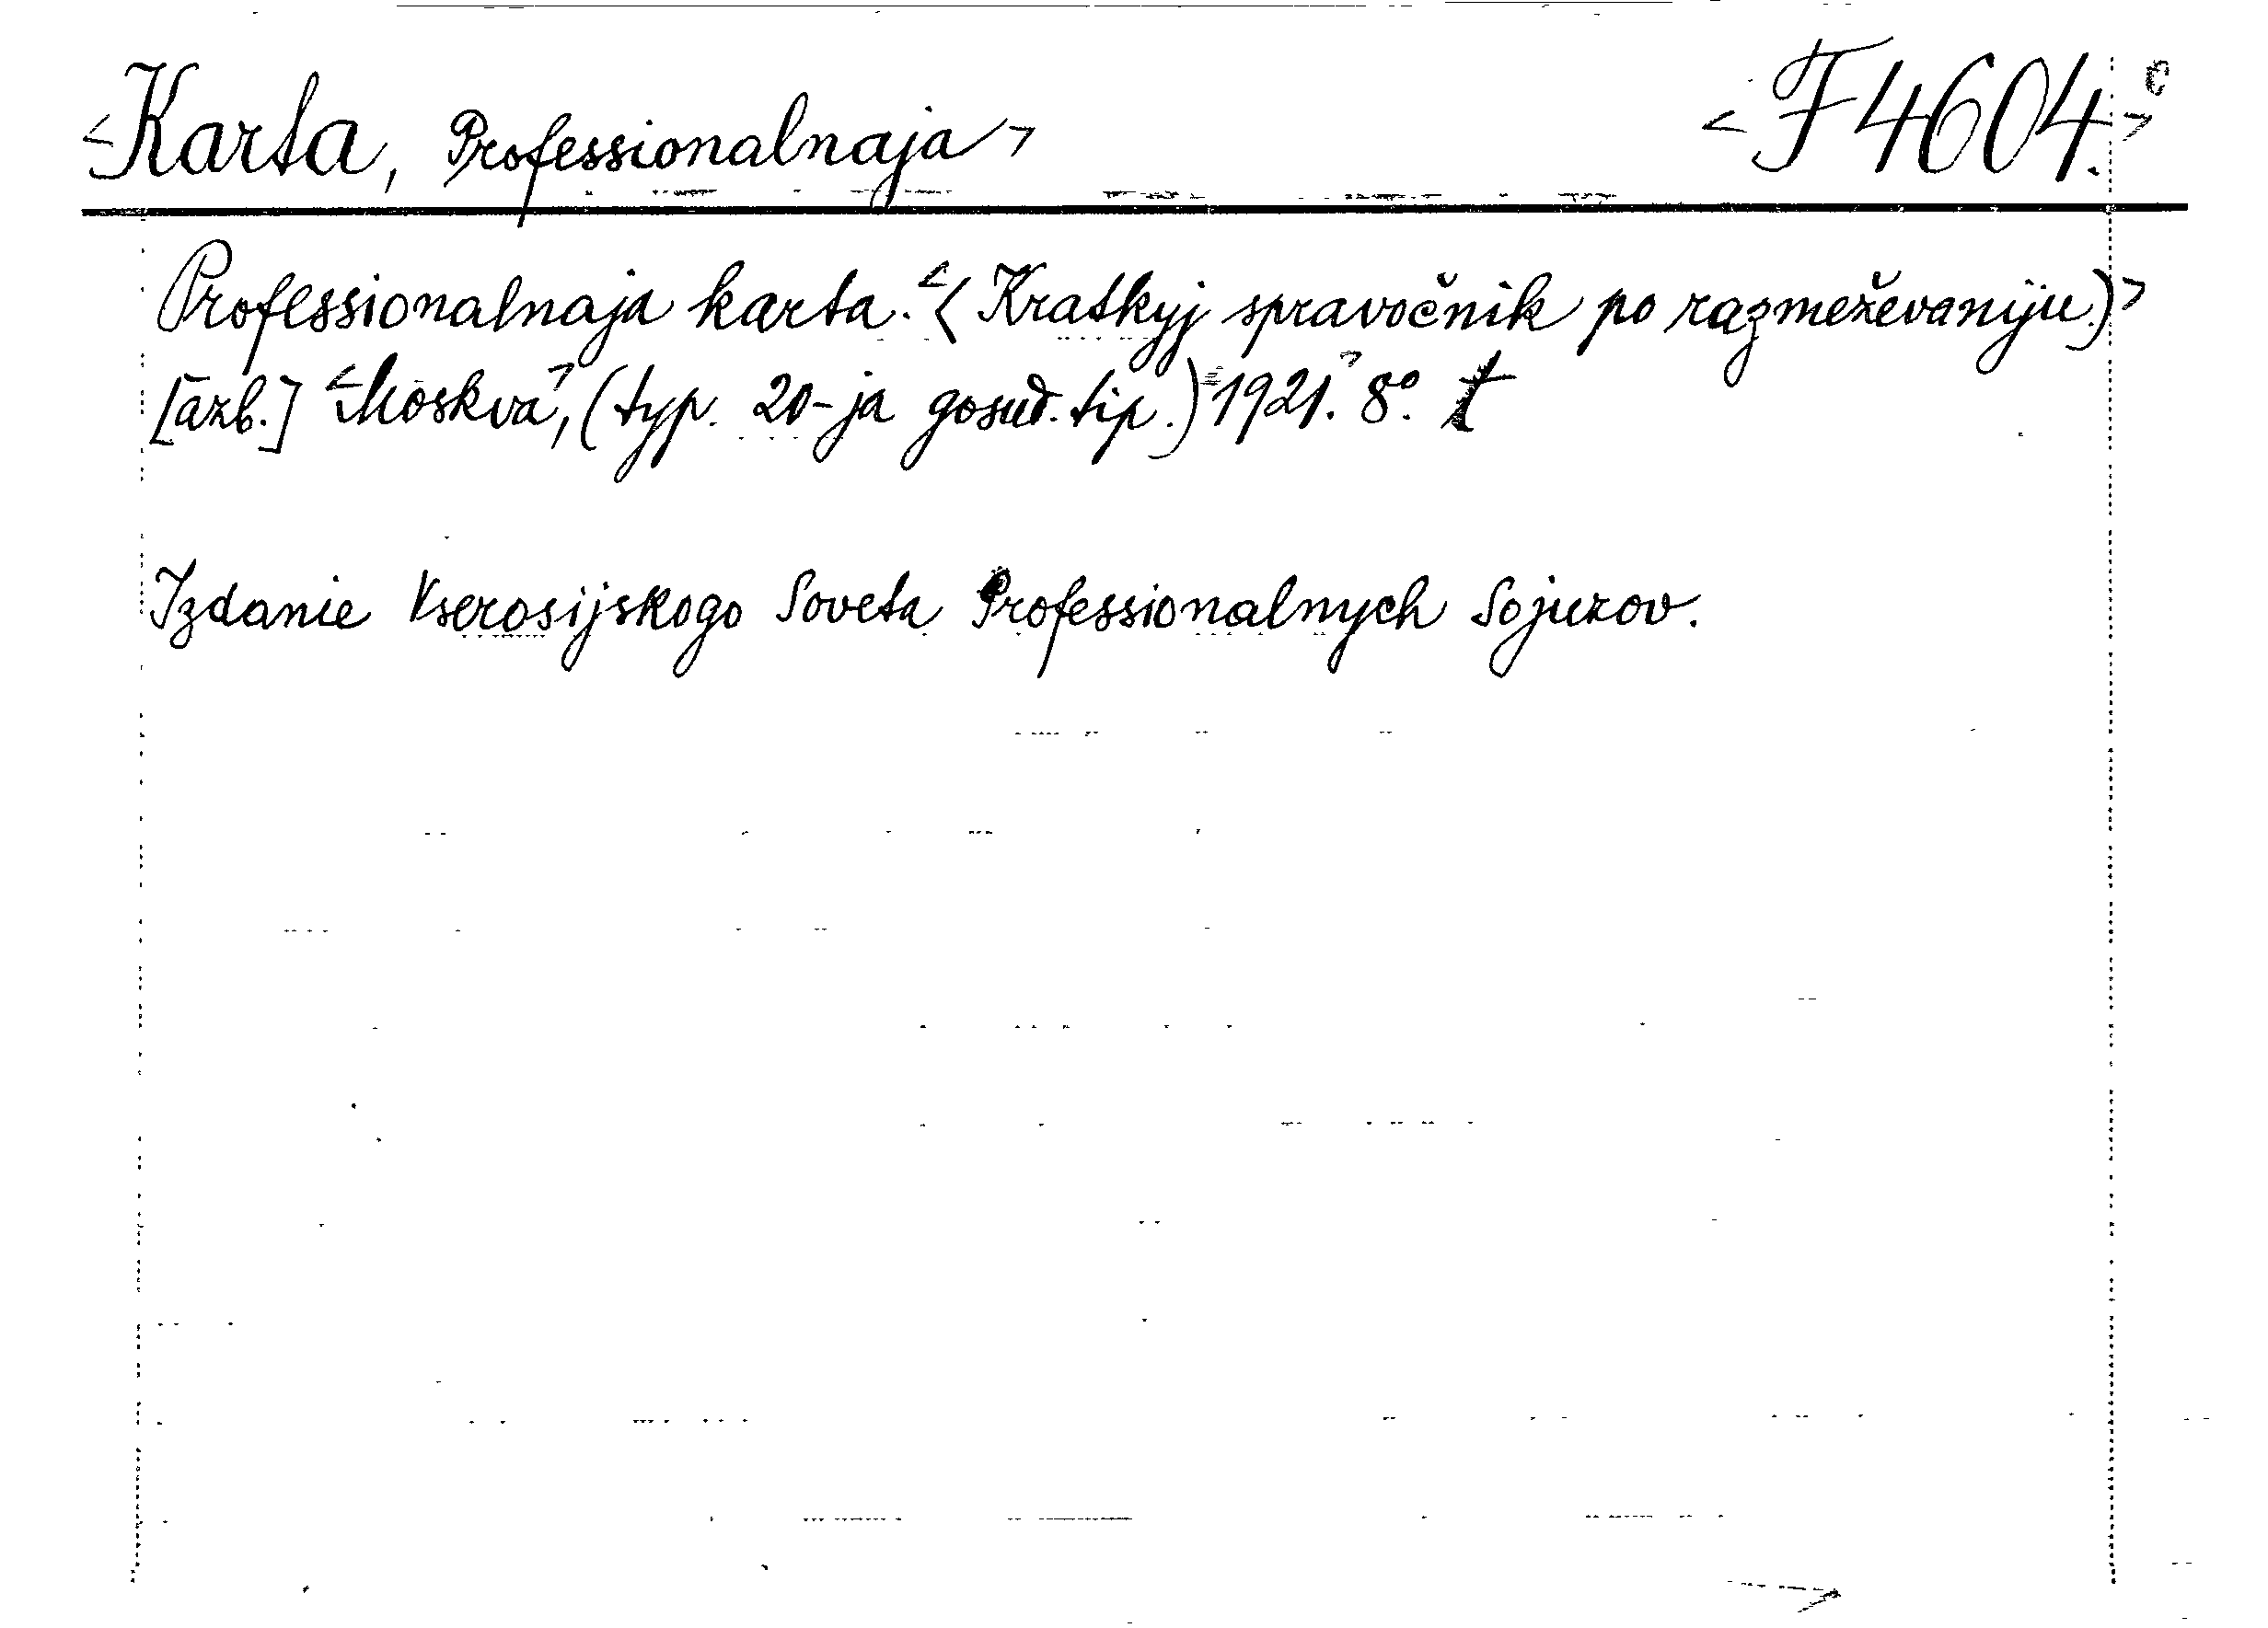 <Karta, Professionalnaja> <F 4604.> c
Professionalnaja karta. <(Kratkyj spravočnik po razmeževaniju.)>
[azb.] <Moskva>, (typ. 20-ja gosud. tip.) <1921.> 8°. t
Izdanie Vserosijskogo Soveta Professionalnych Sojuzov.